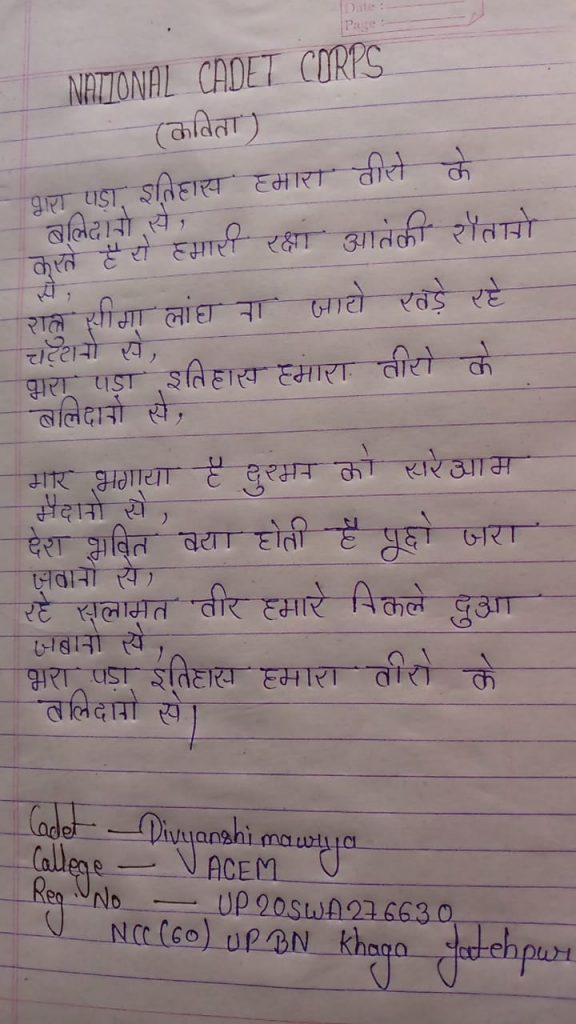 Date :
Page :
NATIONAL CADET CORPS
(कविता)
भरा पड़ा इतिहास हमारा वीरो के
बलिदानो से,
करते है ये हमारी रक्षा आतंकी शैतानो
से,
शत्रु सीमा लांघ ना जाये खड़े रहे
चट्टानो से,
भरा पड़ा इतिहास हमारा वीरो के
बलिदानो से,
मार भगाया है दुश्मन को सरेआम
मैदानो से,
देश भक्ति क्या होती है पूछो जरा
जवानो से,
रहे सलामत वीर हमारे निकले दुआ
जबानो से,
भरा पड़ा इतिहास हमारा वीरो के
बलिदानो से|
Cadet — Divyanshi maurya
Callege — ACEM
Reg. No — UP20SWA276630
NCC (60) UP BN Khaga fatehpur